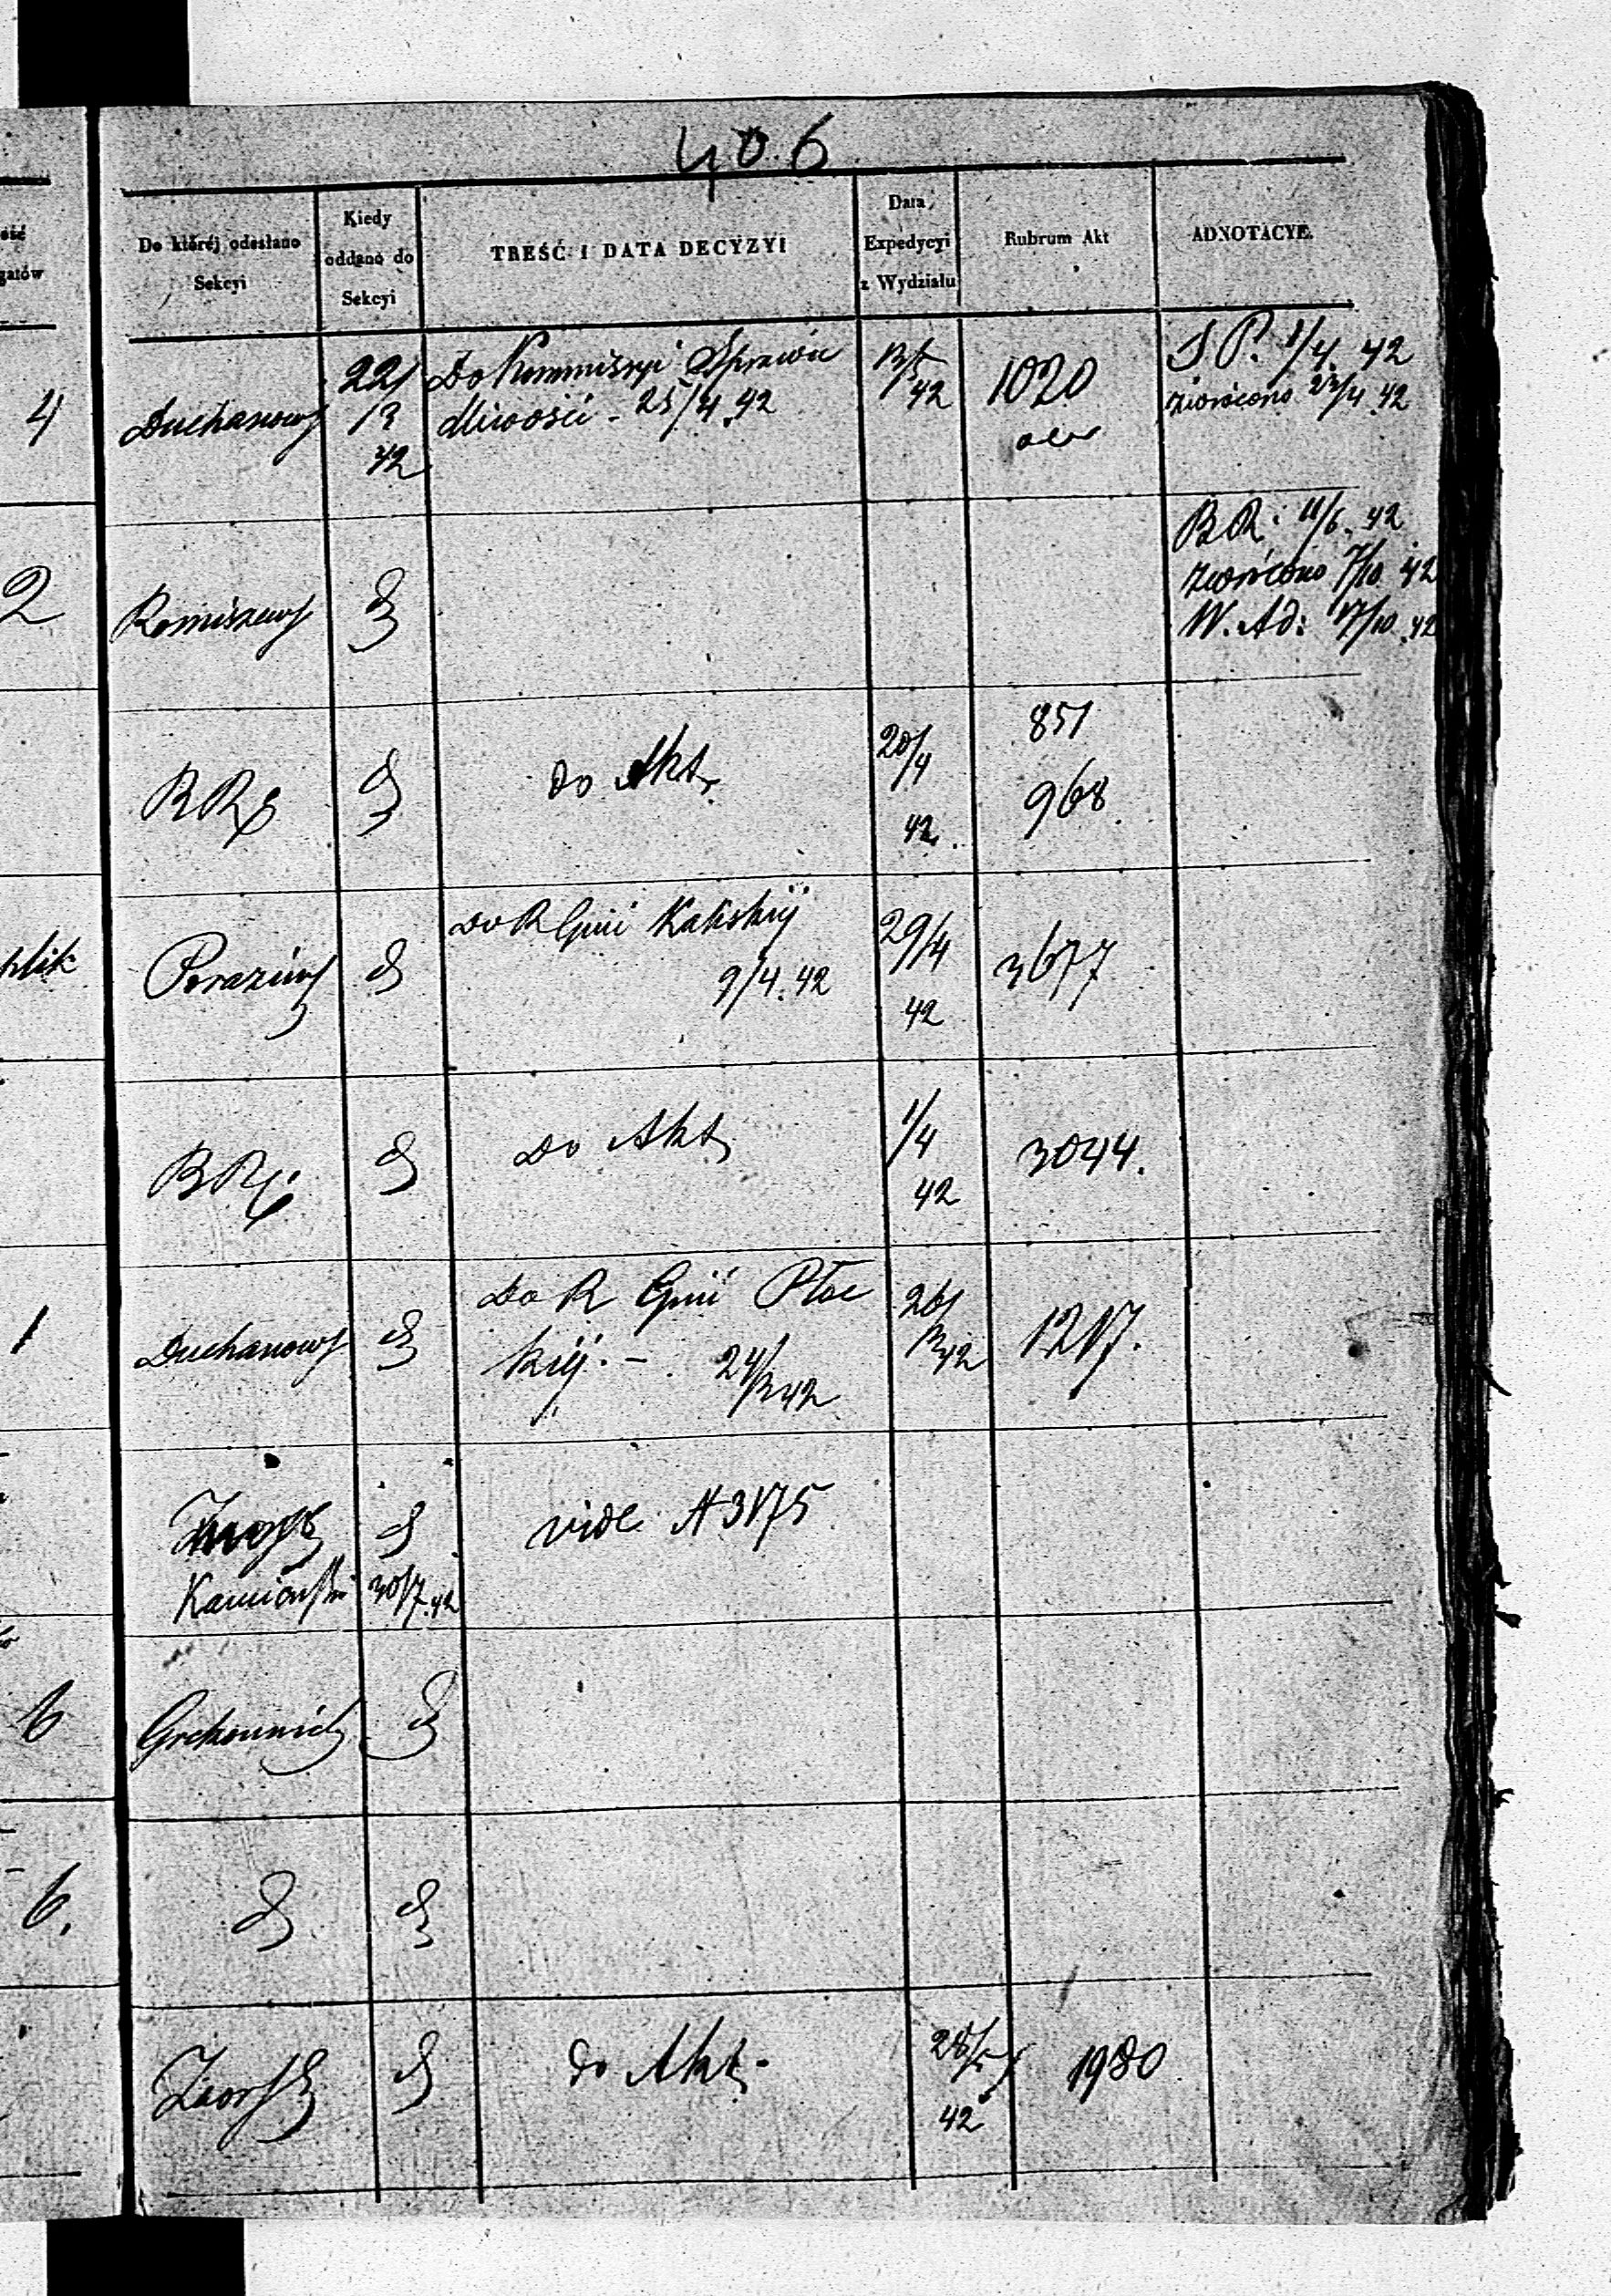 406
ość
gatów
Do któréj odesłano
Sekcyi
Kiedy
oddano do
Sekcyi
TREŚĆ I DATA DECYZYI
Data
Expedycyi
z Wydziału
Rubrum Akt
ADNOTACYE.
4
Duchanows
22/
/3
42
Do Kommissyi Sprawie
dliwości - 25/4.42
42
1020
S P. 1/4 42
zwrócono 23/4 42
2
Romiszews
B R: 11/6. 42
zwrócono 7/10 42
W. Ad: 17/10 42
B R
do Akt
20/4
42.
851
968.
plik
Porazińs
Do R Gm̃i Kaliskiij
9/4.42
29/4
42
3677
B R
Do Akt
1/4
42
3044.
1
Duchanows
Do R Gm̃i Płoc
kiij. - 24/3 42
26/
3 42
1217.
Kamieński
30/7.42
vide N 3175
6
6.
do Akt
42
1980